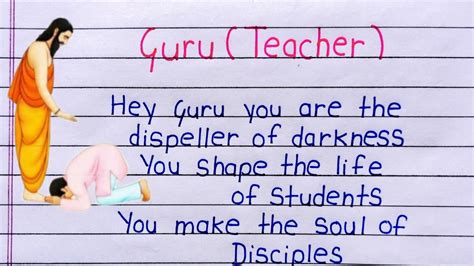 Guru (Teacher)
Hey Guru you are the
dispeller of darkness
You shape the life
of Students
You make the soul of
Disciples